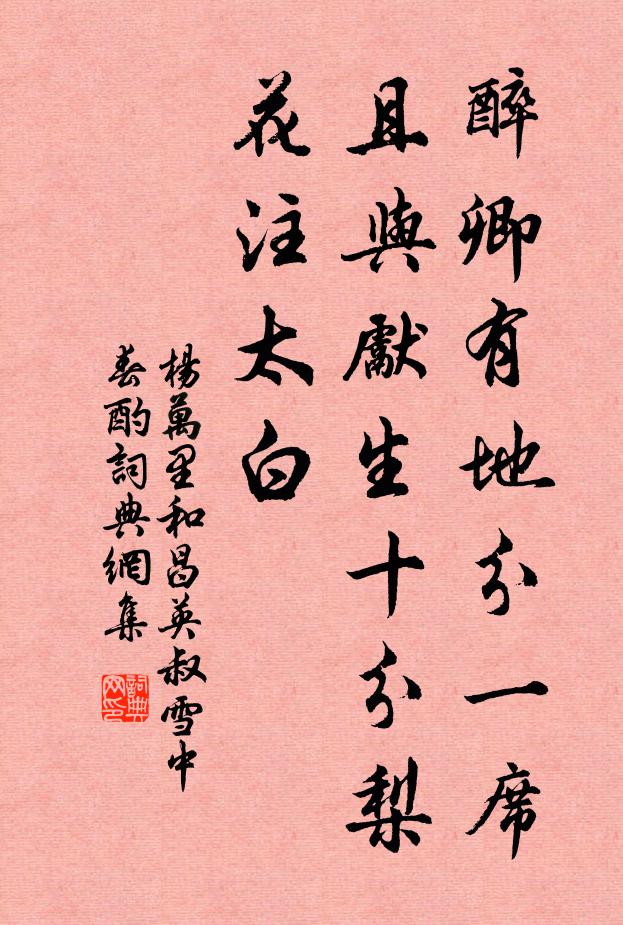 醉卿有地分一席
且與獻生十分梨
花注太白
楊萬里和昌英叔雪中
春酌詞典網集
詞典网印